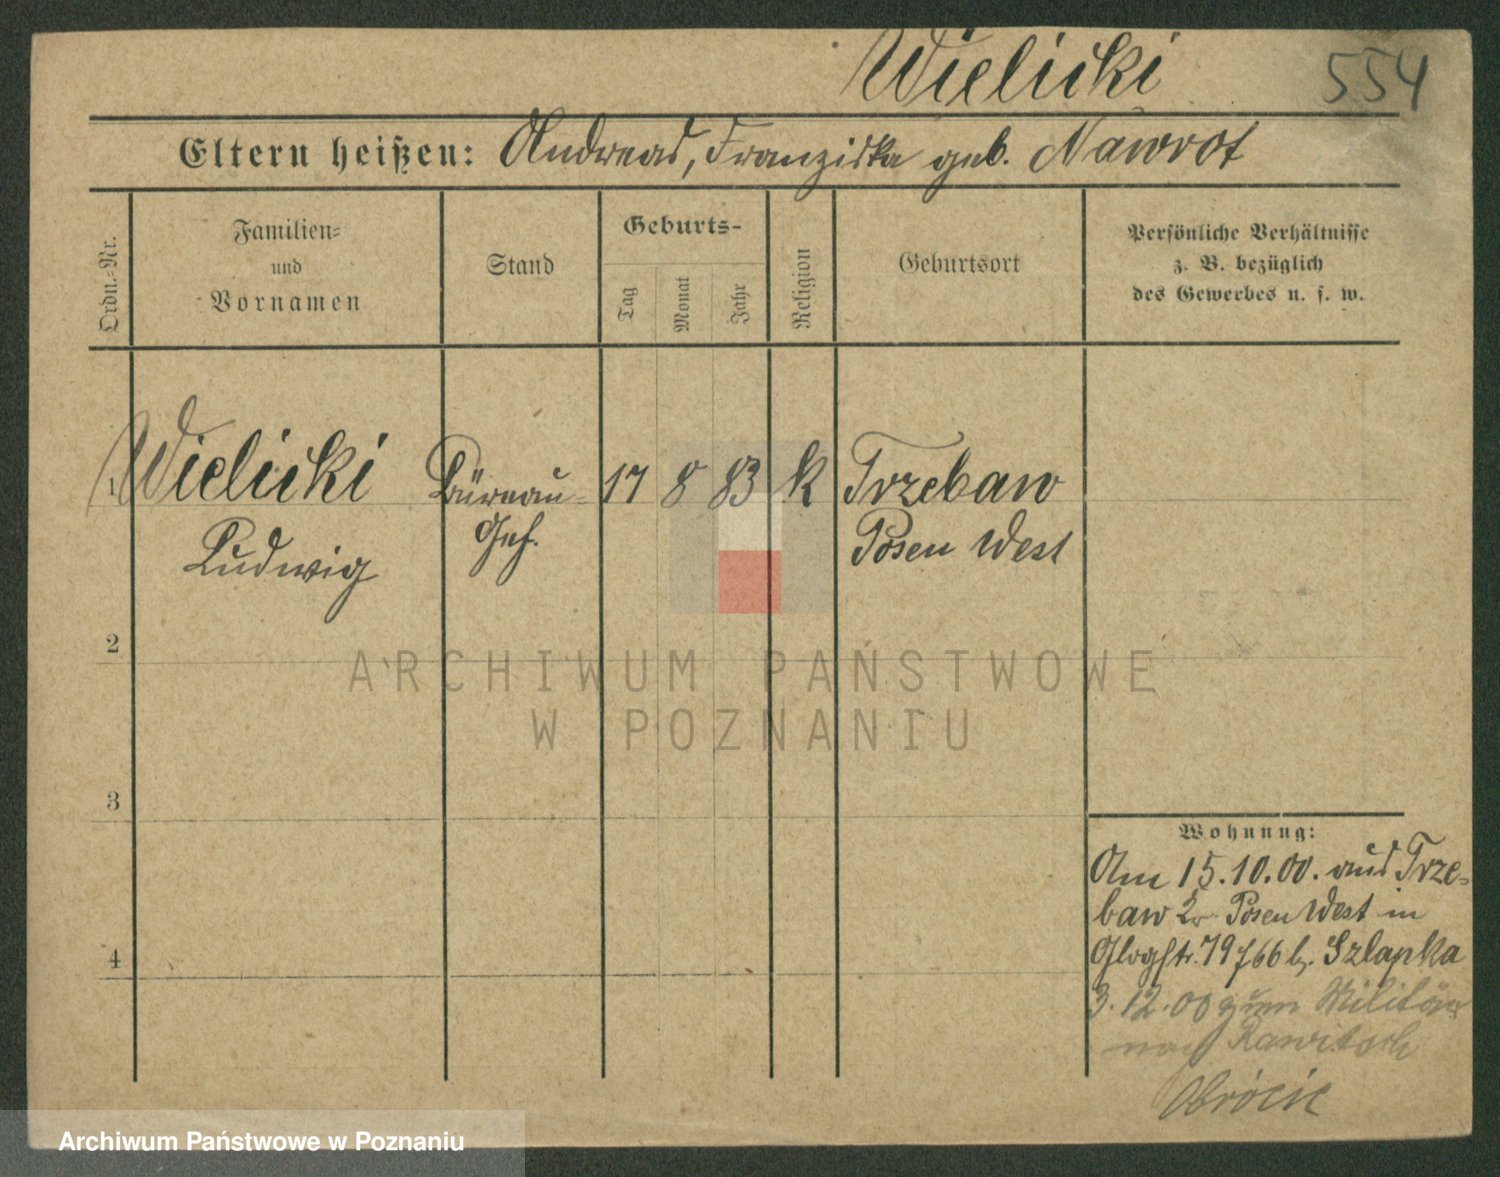 Wielicki
554
Eltern heißen: Andreas, Franziska geb. Nawrot
Ordn.-Nr.
Familien-
und
Vornamen
Stand
Geburts-
Tag
Monat
Jahr
Religion
Geburtsort
Persönliche Verhältnisse
z. B. bezüglich
des Gewerbes u. s. w.
1 Wielicki Büreau- 17 8 83 k Trzebaw
Ludwig Geh. Posen West
2
3
4
Wohnung:
Am 15.10.00. aus Trze-
baw Kr. Posen West in
Glogstr. 79/66 b. Szlapka
3.12.00 zum Militär
nach Rawitsch
ARCHIWUM PAŃSTWOWE
W POZNANIU
Archiwum Państwowe w Poznaniu